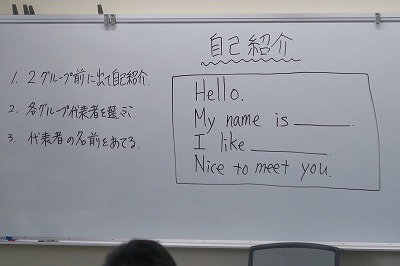 自己紹介
1. 2グループ前に出て自己紹介.
2. 各グループ代表者を選ぶ.
3. 代表者の名前をあてる.
Hello.
My name is ______.
I like ________.
Nice to meet you.